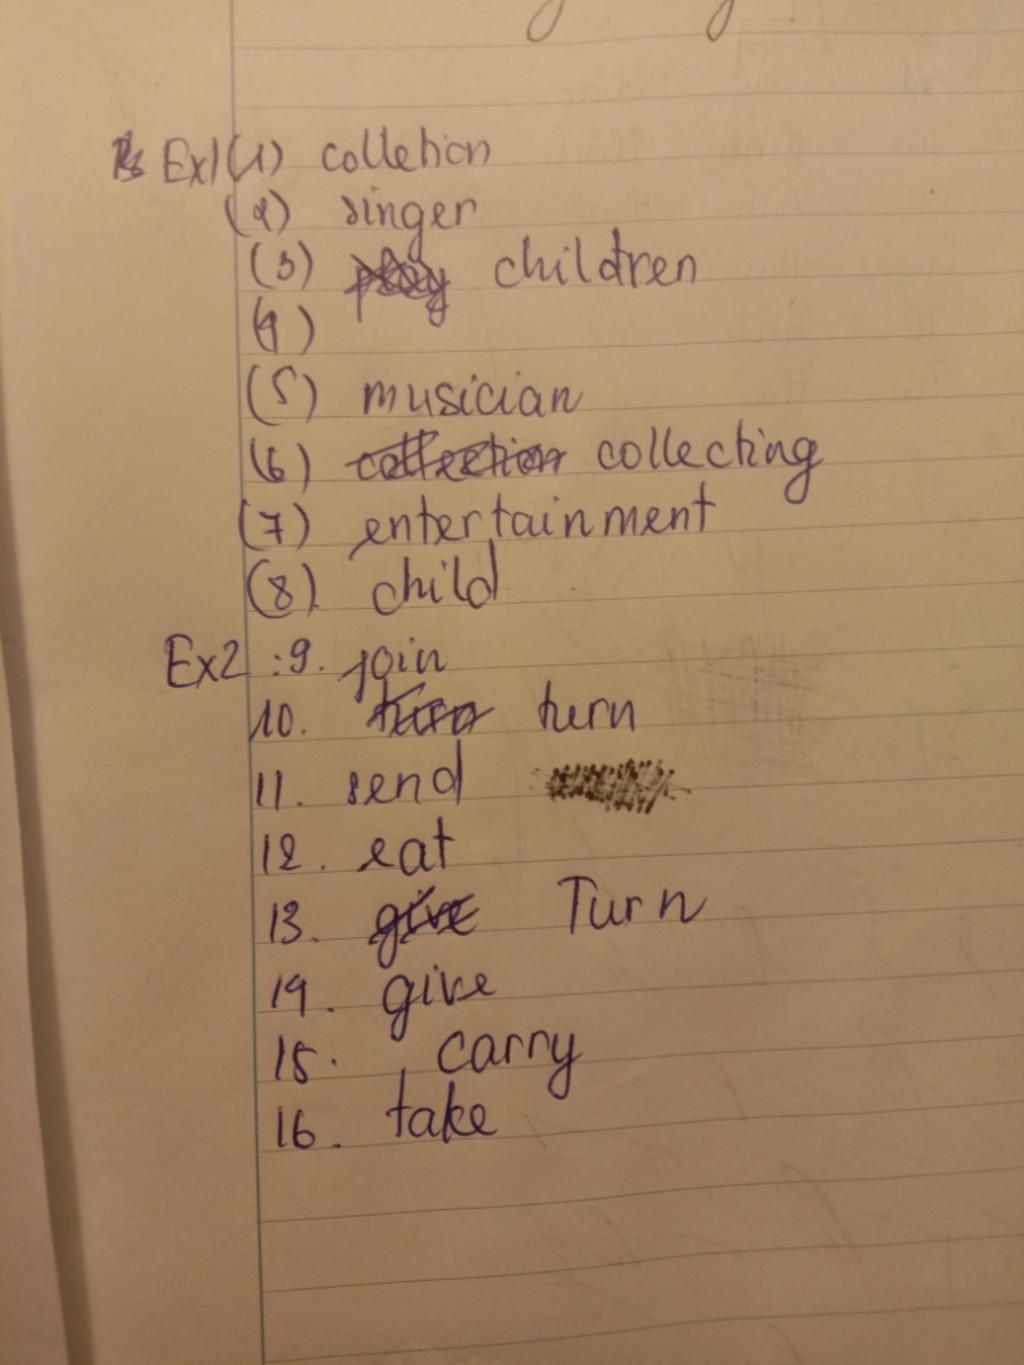 Ex1 (1) colletion
(2) singer
(3) play children
(4)
(5) musician
(6) collection collecting
(7) entertainment
(8) child
Ex2 : 9. join
10. turn turn
11. send
12. eat
13. give Turn
14. give
15. carry
16. take